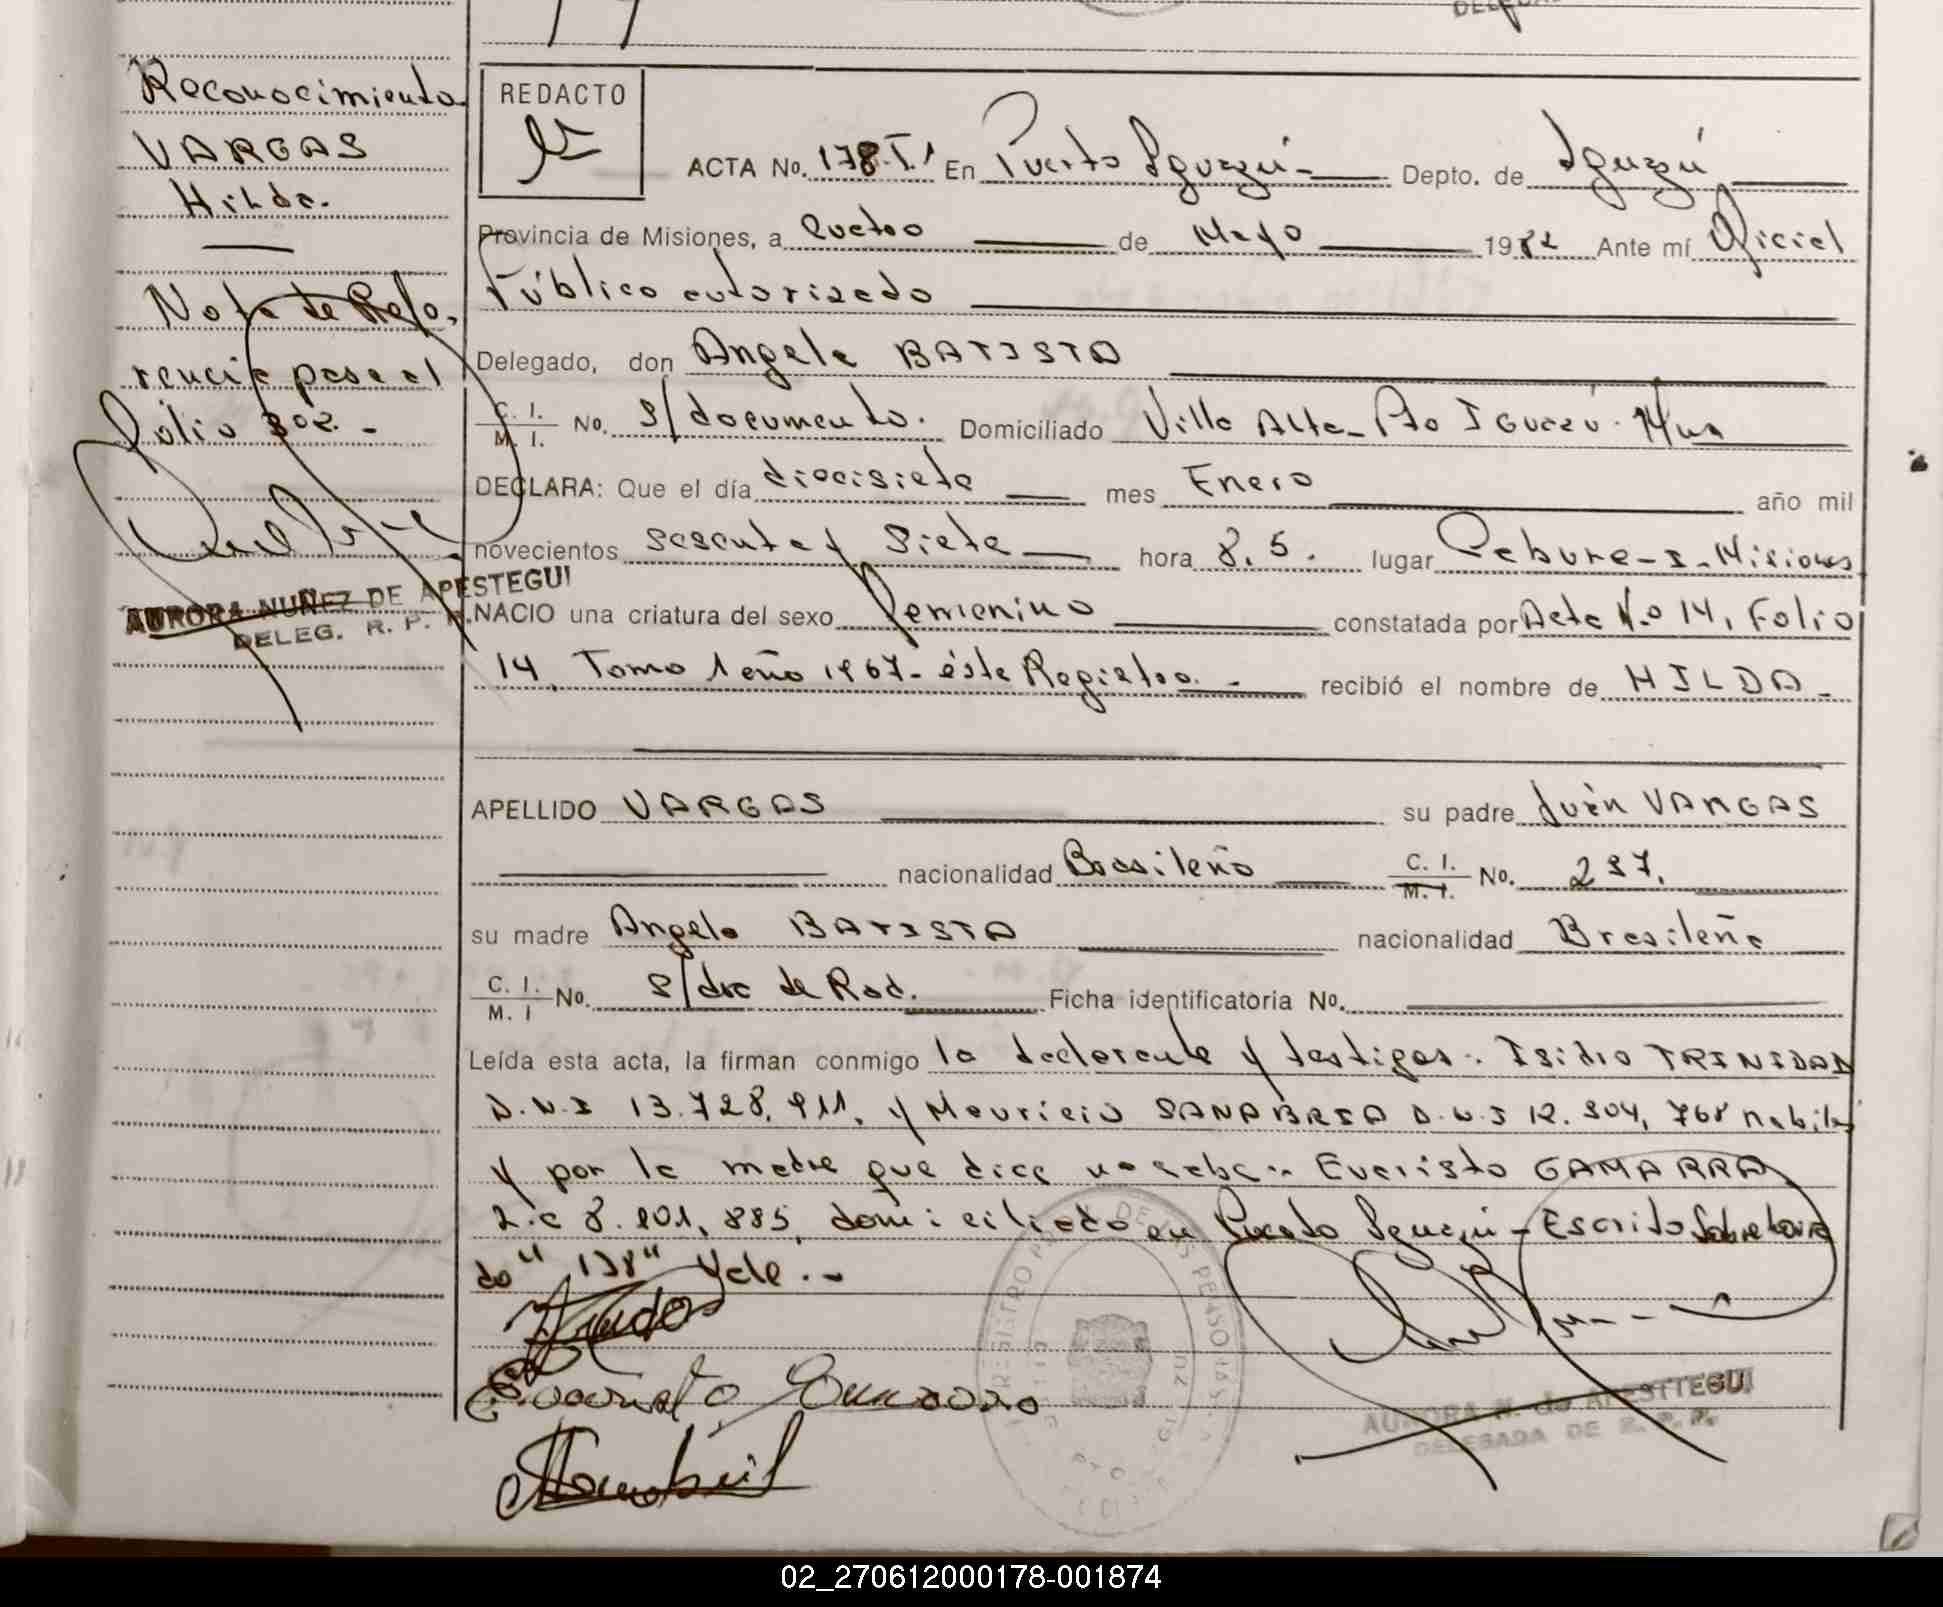 Reconocimiento
VARGAS
Hilda.
Nota de Refe-
rencia pasa al
folio 302. -
AURORA NUÑEZ DE APESTEGUI
DELEG. R. P. P.
REDACTO
ACTA No. 178.T.1 En Puerto Iguazú- Depto. de Iguazú
Provincia de Misiones, a cuatro de Mayo 1982 Ante mí Oficial
Público autorizado
Delegado, don Angela BATISTA
C. I.
M. I. No. s/documento. Domiciliado Villa Alta- Pto Iguazú. Mnes
DECLARA: Que el día diecisiete mes Enero año mil
novecientos sesenta y siete hora 8,5. lugar -I-Misiones
NACIO una criatura del sexo femenino constatada por Acta N.o 14, Folio
14, Tomo 1 año 1967- éste Registro. - recibió el nombre de HILDA-
APELLIDO VARGAS su padre Juan VARGAS
nacionalidad Brasileño C. I.
M. I. No. 237.
su madre Angela BATISTA nacionalidad Brasileña
C. I.
M. I No. s/doc de Rad. Ficha identificatoria No.
Leída esta acta, la firman conmigo la declarante y testigos: Isidro TRINIDAD
D.N.I 13.728.911, y Mauricio SANABRIA D.N.I 12.304,768 habiles
y por la madre que dice no sabe: Evaristo GAMARRA
L.e 8.201,885, domiciliado en Puerto Iguazú - Escrito Sobre borra
do" 178" Vale.-
Evaristo Gamarra
AURORA N. de APESTEGUI
DELEGADA DE R. P. P.
02_270612000178-001874